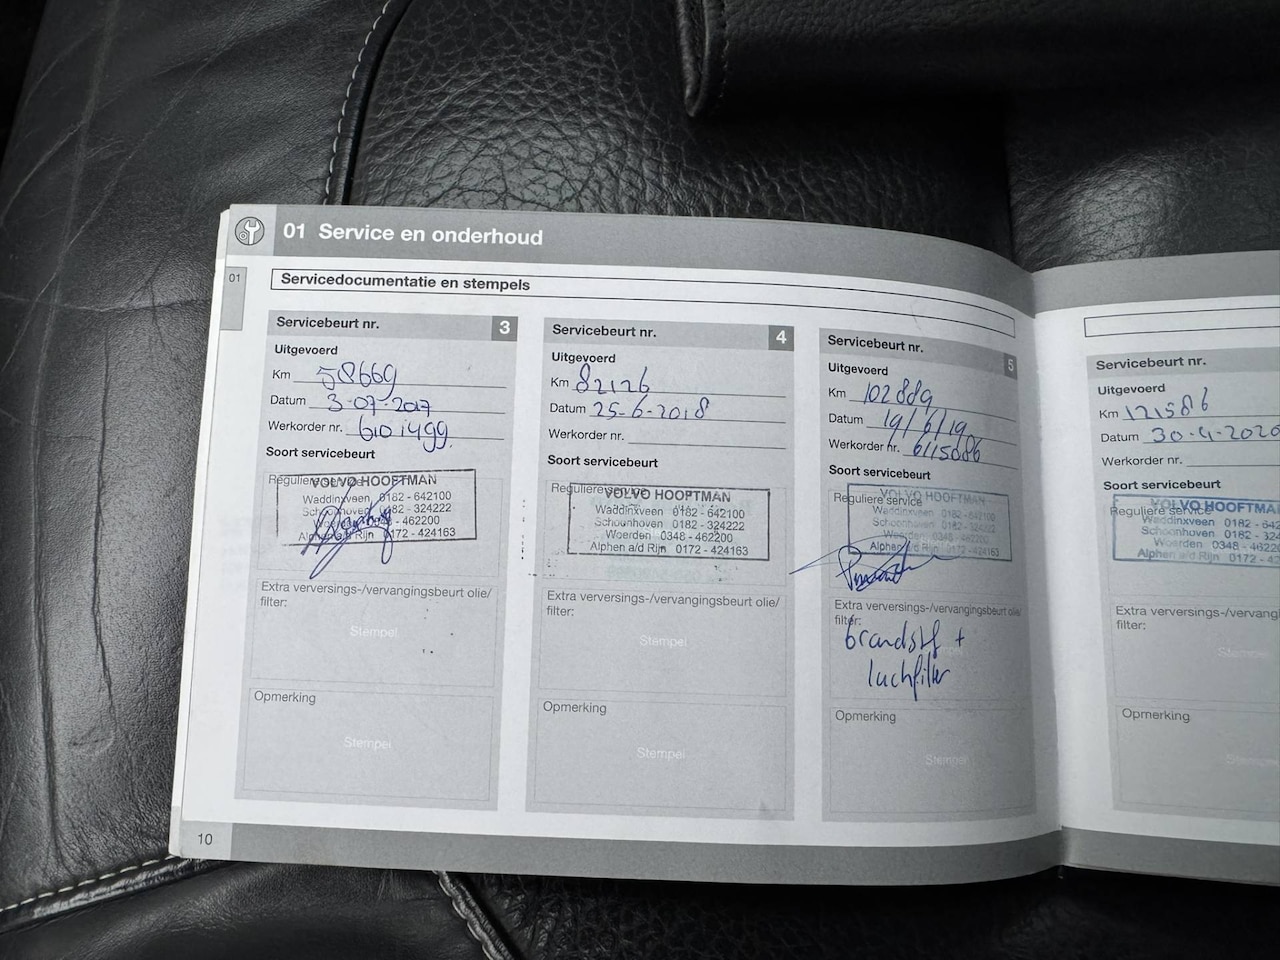 01 Service en onderhoud
01
Servicedocumentatie en stempels
Servicebeurt nr. 3
Uitgevoerd
Km 58669
Datum 3-07-2017
Werkorder nr. 6101499
Soort servicebeurt
Reguliere service
VOLVO HOOFTMAN
Waddinxveen 0182 - 642100
Schoonhoven 0182 - 324222
Woerden 0348 - 462200
Alphen a/d Rijn 0172 - 424163
Extra verversings-/vervangingsbeurt olie/
filter:
Stempel
Opmerking
Stempel
Servicebeurt nr. 4
Uitgevoerd
Km 82126
Datum 25-6-2018
Werkorder nr.
Soort servicebeurt
Reguliere service
VOLVO HOOFTMAN
Waddinxveen 0182 - 642100
Schoonhoven 0182 - 324222
Woerden 0348 - 462200
Alphen a/d Rijn 0172 - 424163
Extra verversings-/vervangingsbeurt olie/
filter:
Stempel
Opmerking
Stempel
Servicebeurt nr. 5
Uitgevoerd
Km 102889
Datum 19/6/19
Werkorder nr. 6115086
Soort servicebeurt
Reguliere service
VOLVO HOOFTMAN
Waddinxveen 0182 - 642100
Schoonhoven 0182 - 324222
Woerden 0348 - 462200
Alphen a/d Rijn 0172 - 424163
Extra verversings-/vervangingsbeurt olie/
filter:
brandstf +
luchfilter
Opmerking
Stempel
10
Servicebeurt nr.
Uitgevoerd
Km 121586
Datum 30-4-2020
Werkorder nr.
Soort servicebeurt
Reguliere service
VOLVO HOOFTMAN
Waddinxveen 0182 - 642
Schoonhoven 0182 - 324
Woerden 0348 - 4622
Alphen a/d Rijn 0172 - 42
Extra verversings-/vervang
filter:
Stempel
Opmerking
Stempel